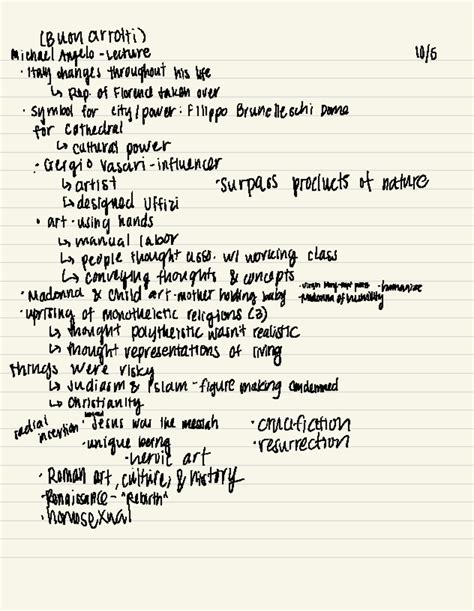 (Buonarrotti)
Michael Angelo - Lecture 10/6
· Italy changes throughout his life
↳ Rep. of Florence taken over
· Symbol for city/power: Filippo Brunelleschi Dome
for Cathedral
↳ cultural power
· Giergio Vasari - influencer
↳ artist · Surpass products of nature
↳ designed Uffizi
· art - using hands
↳ manual labor
↳ people thought asso. w/ working class
↳ conveying thoughts & concepts
· Madonna & Child art - mother holding baby · Madonna of humility · humanize
· uprising of monotheistic religions (3)
↳ thought polytheistic wasn't realistic
↳ thought representations of living
things were risky
↳ Judiasm & Islam - figure making condemned
↳ Christianity
· Jesus was the messiah · crucifiction
· unique being · resurrection
· heroic art
· Roman art, culture, & history
· Renaissance - "Rebirth"
· homosexual